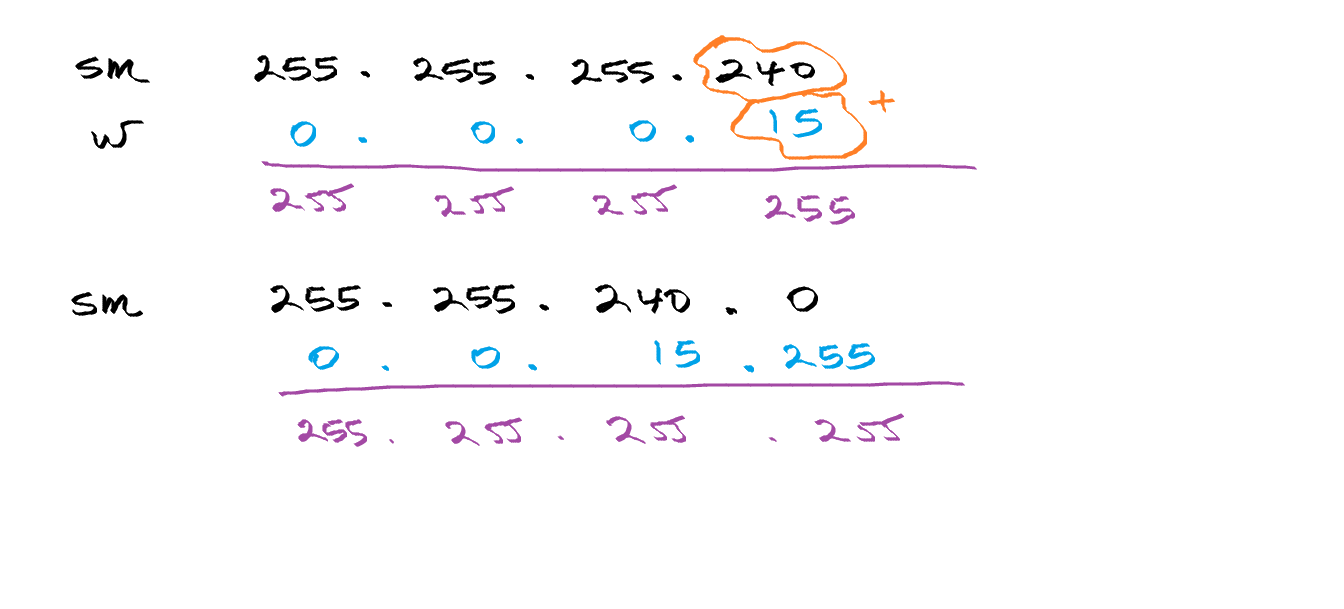 sm 255 . 255 . 255 . 240
w 0 . 0 . 0 . 15 +
255 255 255 255
sm 255 . 255 . 240 . 0
0 . 0 . 15 . 255
255 . 255 . 255 . 255